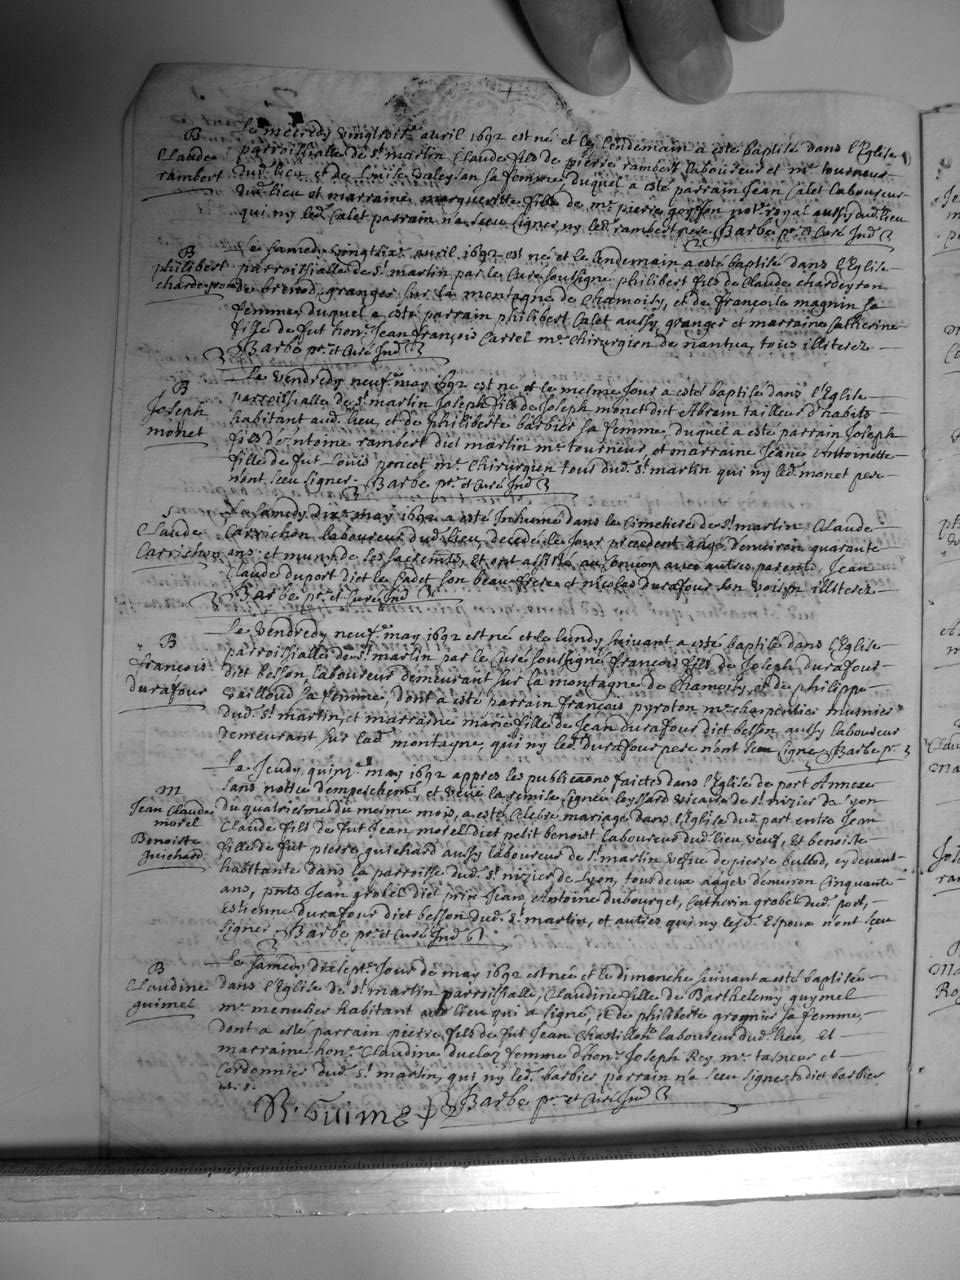 B
Claude
rambert
Le mecredy vingttrois.e avril 1692 est né et le lendemain a esté baptisé dans l'Eglise
parroissialle de st martin Claude fils de pierre rambert laboureur et m.e tourneur
dud. lieu, et de Louise sa femme, duquel a esté parrain Jean Calet laboureur
dud. lieu et marraine marguerite fille de m.e pierre not.re royal aussy dud. lieu
qui ny led. Calet parrain n'a sceu signer ny led. rambert pere. Barbe p.r et Curé Ind.
B
philibert
chardeyron
Le samedy vingtsix.e avril 1692 est né et le lendemain a esté baptisé dans l'Eglise
parroissialle de St. martin par le Curé soussigné philibert fils de Claude chardeyron
de brenod, granger sur la montagne de Chamoise, et de françoise magnin sa
femme, duquel a esté parrain philibert Calet aussy granger et marraine Catherine
fille de fut hon.e Jean françois Carrel m.e Chirurgien de nantua, tous illiterez
Barbe p.r et Curé Ind.
B
Joseph
monet
Le vendredy neuf.e may 1692 est né et le mesme Jour a esté baptisé dans l'Eglise
parroissialle de st martin Joseph fils de Joseph monet dict Abram tailleur d'habits
habitant aud. lieu, et de philiberte barbier sa femme, duquel a esté parrain Joseph
fils d'Antoine rambert dict martin m.e tourneur, et marraine Jeane Antoinette
fille de fut Louis poncet m.e Chirurgien tous dud. st martin qui ny led. monet pere
n'ont sceu signer. Barbe p.r et Curé Ind.
Claude
Carrichon
Le samedy dix.e may 1692 a esté Inhumé dans le Cimetiere de St martin Claude
Carrichon laboureur dud. lieu, decedé le Jour precedent aagé d'environ quarante
ans et muny de ses sacrem.ts, et ont assisté au convoy avec autres parents, Jean
Claude duport dict le Cadet son beau frere et nicolas durafour son voisin illiterez
Barbe p.r et Curé Ind.
B
françois
durafour
Le vendredy neuf.e may 1692 est né et le lundy suivant a esté baptisé dans l'Eglise
parroissialle de st martin par le Curé soussigné françois fils de Joseph durafour
dict besson laboureur demeurant sur la montagne de Chamoise, et de philippe
vailloud sa femme, dont a esté parrain françois pyroton m.e charpentier musnier
dud. st martin, et marraine marie fille de Jean durafour dict besson aussy laboureur
demeurant sur lad. montagne, qui ny led. durafour pere n'ont sceu signe Barbe p.r
M
Jean Claude
morel
Benoiste
guichard
Le Jeudy quinz.e may 1692 appres les publica.ons faictes dans l'Eglise de port Annexe
sans notice d'empeschem.t, et veüe la remise signée vicaire de St nizier de Lyon
du quatriesme du mesme mois, a esté Celebré mariage dans l'Eglise dud. port entre Jean
Claude fils de fut Jean morel dict petit benoist laboureur dud. lieu veuf, Et benoiste
fille de fut pierre guichard aussy laboureur de St martin vefve de pierre bullod, cy devant
habitante dans la parroisse dud. St nizier de Lyon, tous deux aagez d'environ Cinquante
ans, pnts Jean grobel dict prin Jean, Antoine dubourget, Catherin grobel dud. port,
Estienne durafour dict besson dud. st martin, et autres qui ny lesd. Espoux n'ont sceu
signer Barbe p.r et Curé Ind.
B
Claudine
guimet
Le samedy dixsept.e Jour de may 1692 est née et le dimanche suivant a esté baptisée
dans l'Eglise de st martin parroissialle, Claudine fille de Barthelemy guymet
m.e menusier habitant aud. lieu qui a signé, et de philiberte grognier sa femme,
dont a esté parrain pierre fils de fut Jean Chastillon laboureur dud. lieu, et
marraine hon.e Claudine ducloz femme d'hon.e Joseph Rey m.e taneur et
Cordonnier dud. St martin, qui ny led. barbier parrain n'a sceu signer dict barbier
B. Guimet Barbe p.r et Curé Ind.